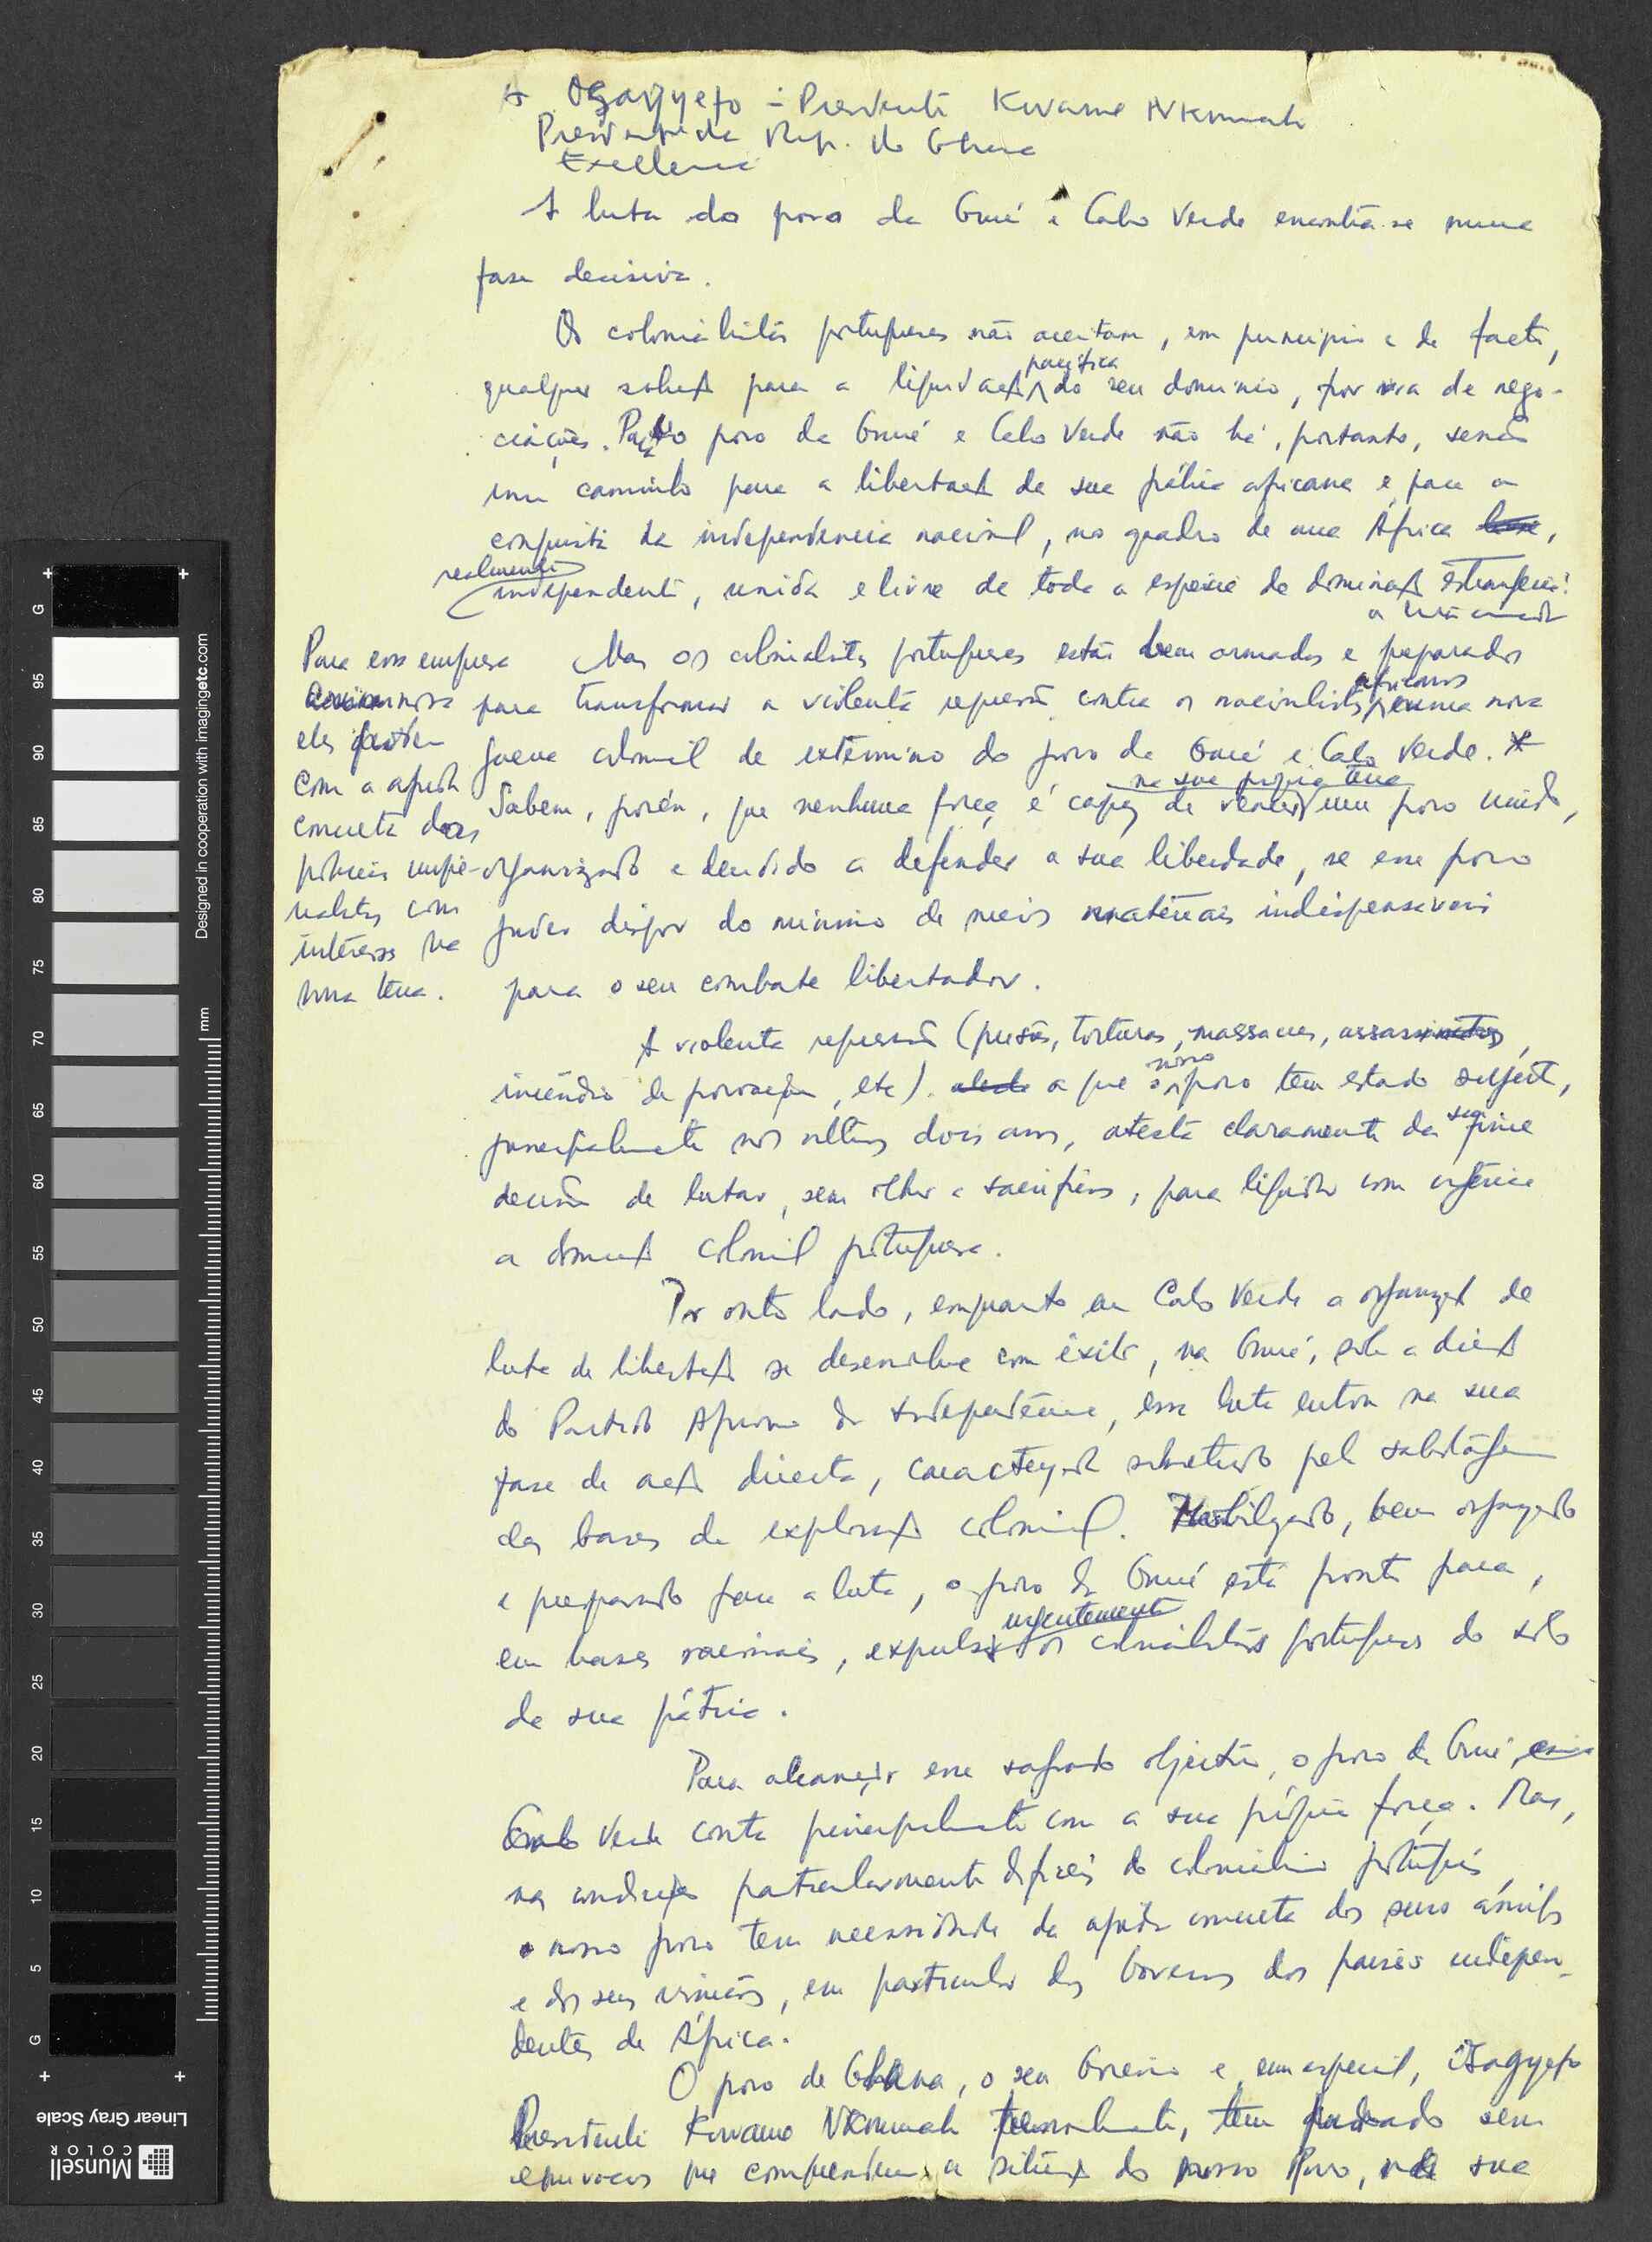 A Osagyefo - Presidente Kwame Nkrumah
Presidente da Rep. do Ghana
Excellence
A luta do povo da Guiné e Cabo Verde encontra-se numa
fase decisiva.
Os colonialistas portugueses não aceitam, em princípio e de facto,
pacífica
qualquer solução para a liquidação do seu domínio, por via de nego-
ciações. Para o povo da Guiné e Cabo Verde não há, portanto, senão
um caminho para a libertação da sua pátria africana e para a
conquista da independência nacional, no quadro de uma África
realmente
independente, unida e livre de toda a espécie de dominação estrangeira:
a luta
Mas os colonialistas portugueses estão bem armados e preparados
africanos
para transformar a violenta repressão contra os nacionalistas numa nova
guerra colonial de extermínio do povo da Guiné e Cabo Verde. *
na sua própria terra
Sabem, porém, que nenhuma força é capaz de vencer um povo unido,
organizado e decidido a defender a sua liberdade, se esse povo
puder dispor do mínimo de meios materiais indispensáveis
para o seu combate libertador.
Para essa empresa
eles contam
com a ajuda
concreta das
potências impe-
rialistas com
interesses na
nossa terra.
A violenta repressão (prisões, torturas, massacres, assassinatos,
nosso
incêndio de povoações, etc). a que o povo tem estado sujeito,
sua
principalmente nos últimos dois anos, atesta claramente da firme
decisão de lutar, sem olhar a sacrifícios, para liquidar com urgência
a dominação colonial portuguesa.
Por outro lado, enquanto em Cabo Verde a organização da
luta de libertação se desenvolve com êxito, na Guiné, sob a direcção
do Partido Africano da Independência, essa luta entrou na sua
fase de acção directa, caracterizada sobretudo pela sabotagem
das bases da exploração colonial. Mobilizado, bem organizado
e preparado para a luta, o povo da Guiné está pronto para,
urgentemente
em bases racionais, expulsar os colonialistas portugueses do solo
da sua pátria.
Para alcançar esse sagrado objectivo, o povo da Guiné e
Cabo Verde conta principalmente com a sua própria força. Mas,
nas condições particularmente difíceis do colonialismo português,
o nosso povo tem necessidade da ajuda concreta dos seus amigos
e dos seus irmãos, em particular dos Governos dos países indepen-
dentes de África.
O povo de Ghana, o seu Governo e em especial, Osagyefo
Presidente Kwame Nkrumah pessoalmente, têm mostrado sem
equívocos que compreendem a situação do nosso Povo, na sua